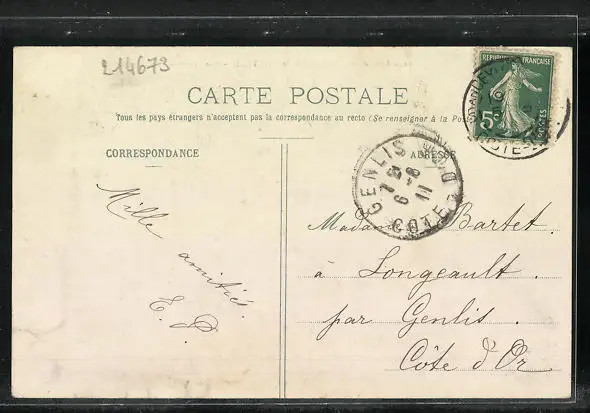 214673
CARTE POSTALE
Tous les pays étrangers n'acceptent pas la correspondance au recto (Se renseigner à la Pos
CORRESPONDANCE
ADRESSE
REPUBLIQUE FRANÇAISE
5c
POSTES
GENLIS
6-8
11
COTE D'OR
Mille
amitiés.
E. P.
Madame Bartet.
à Longeault.
par Genlis.
Côte d'Or